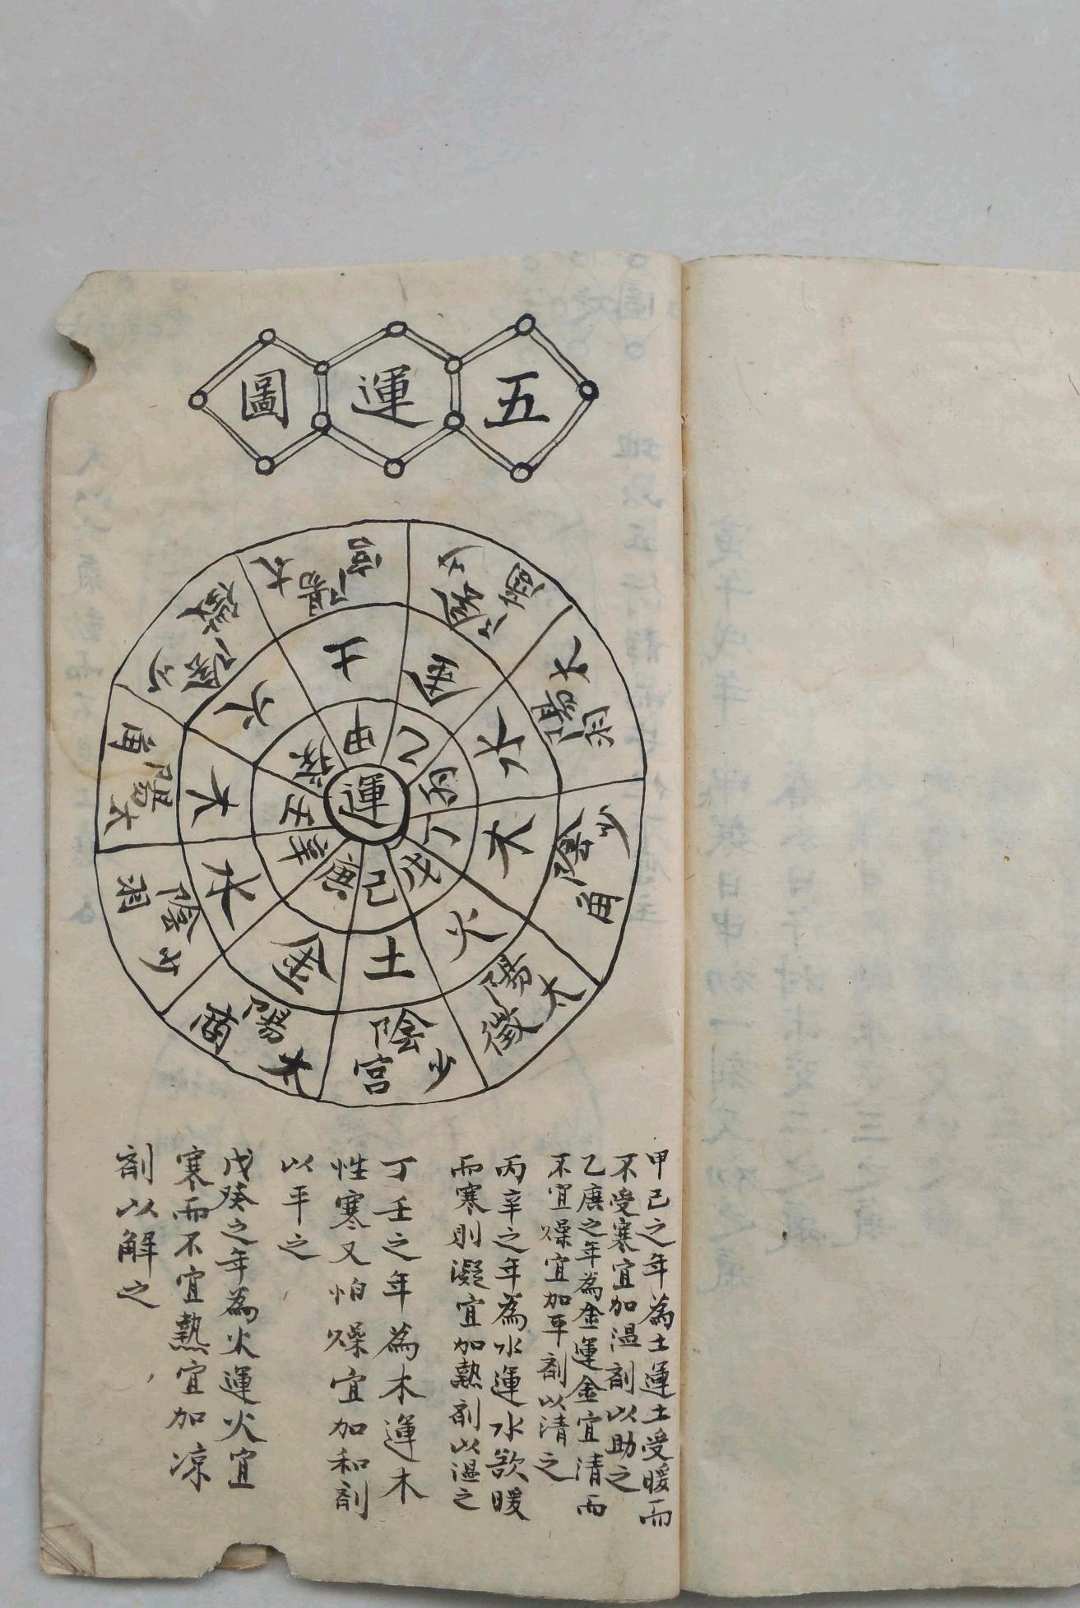 五運圖
運
甲
乙
丙
丁
戊
己
庚
辛
壬
癸
土
金
水
木
火
土
金
水
木
火
太陽宮
少陰商
太陽羽
少陰角
太陽徵
少陰宮
太陽商
少陰羽
太陽角
少陰徵
甲己之年為土運土受暖而
不受寒宜加溫劑以助之
乙庚之年為金運金宜清而
不宜燥宜加平劑以清之
丙辛之年為水運水欲暖
而寒則凝宜加熱劑以溫之
丁壬之年為木運木
性寒又怕燥宜加和劑
以平之
戊癸之年為火運火宜
寒而不宜熱宜加凉
劑以解之